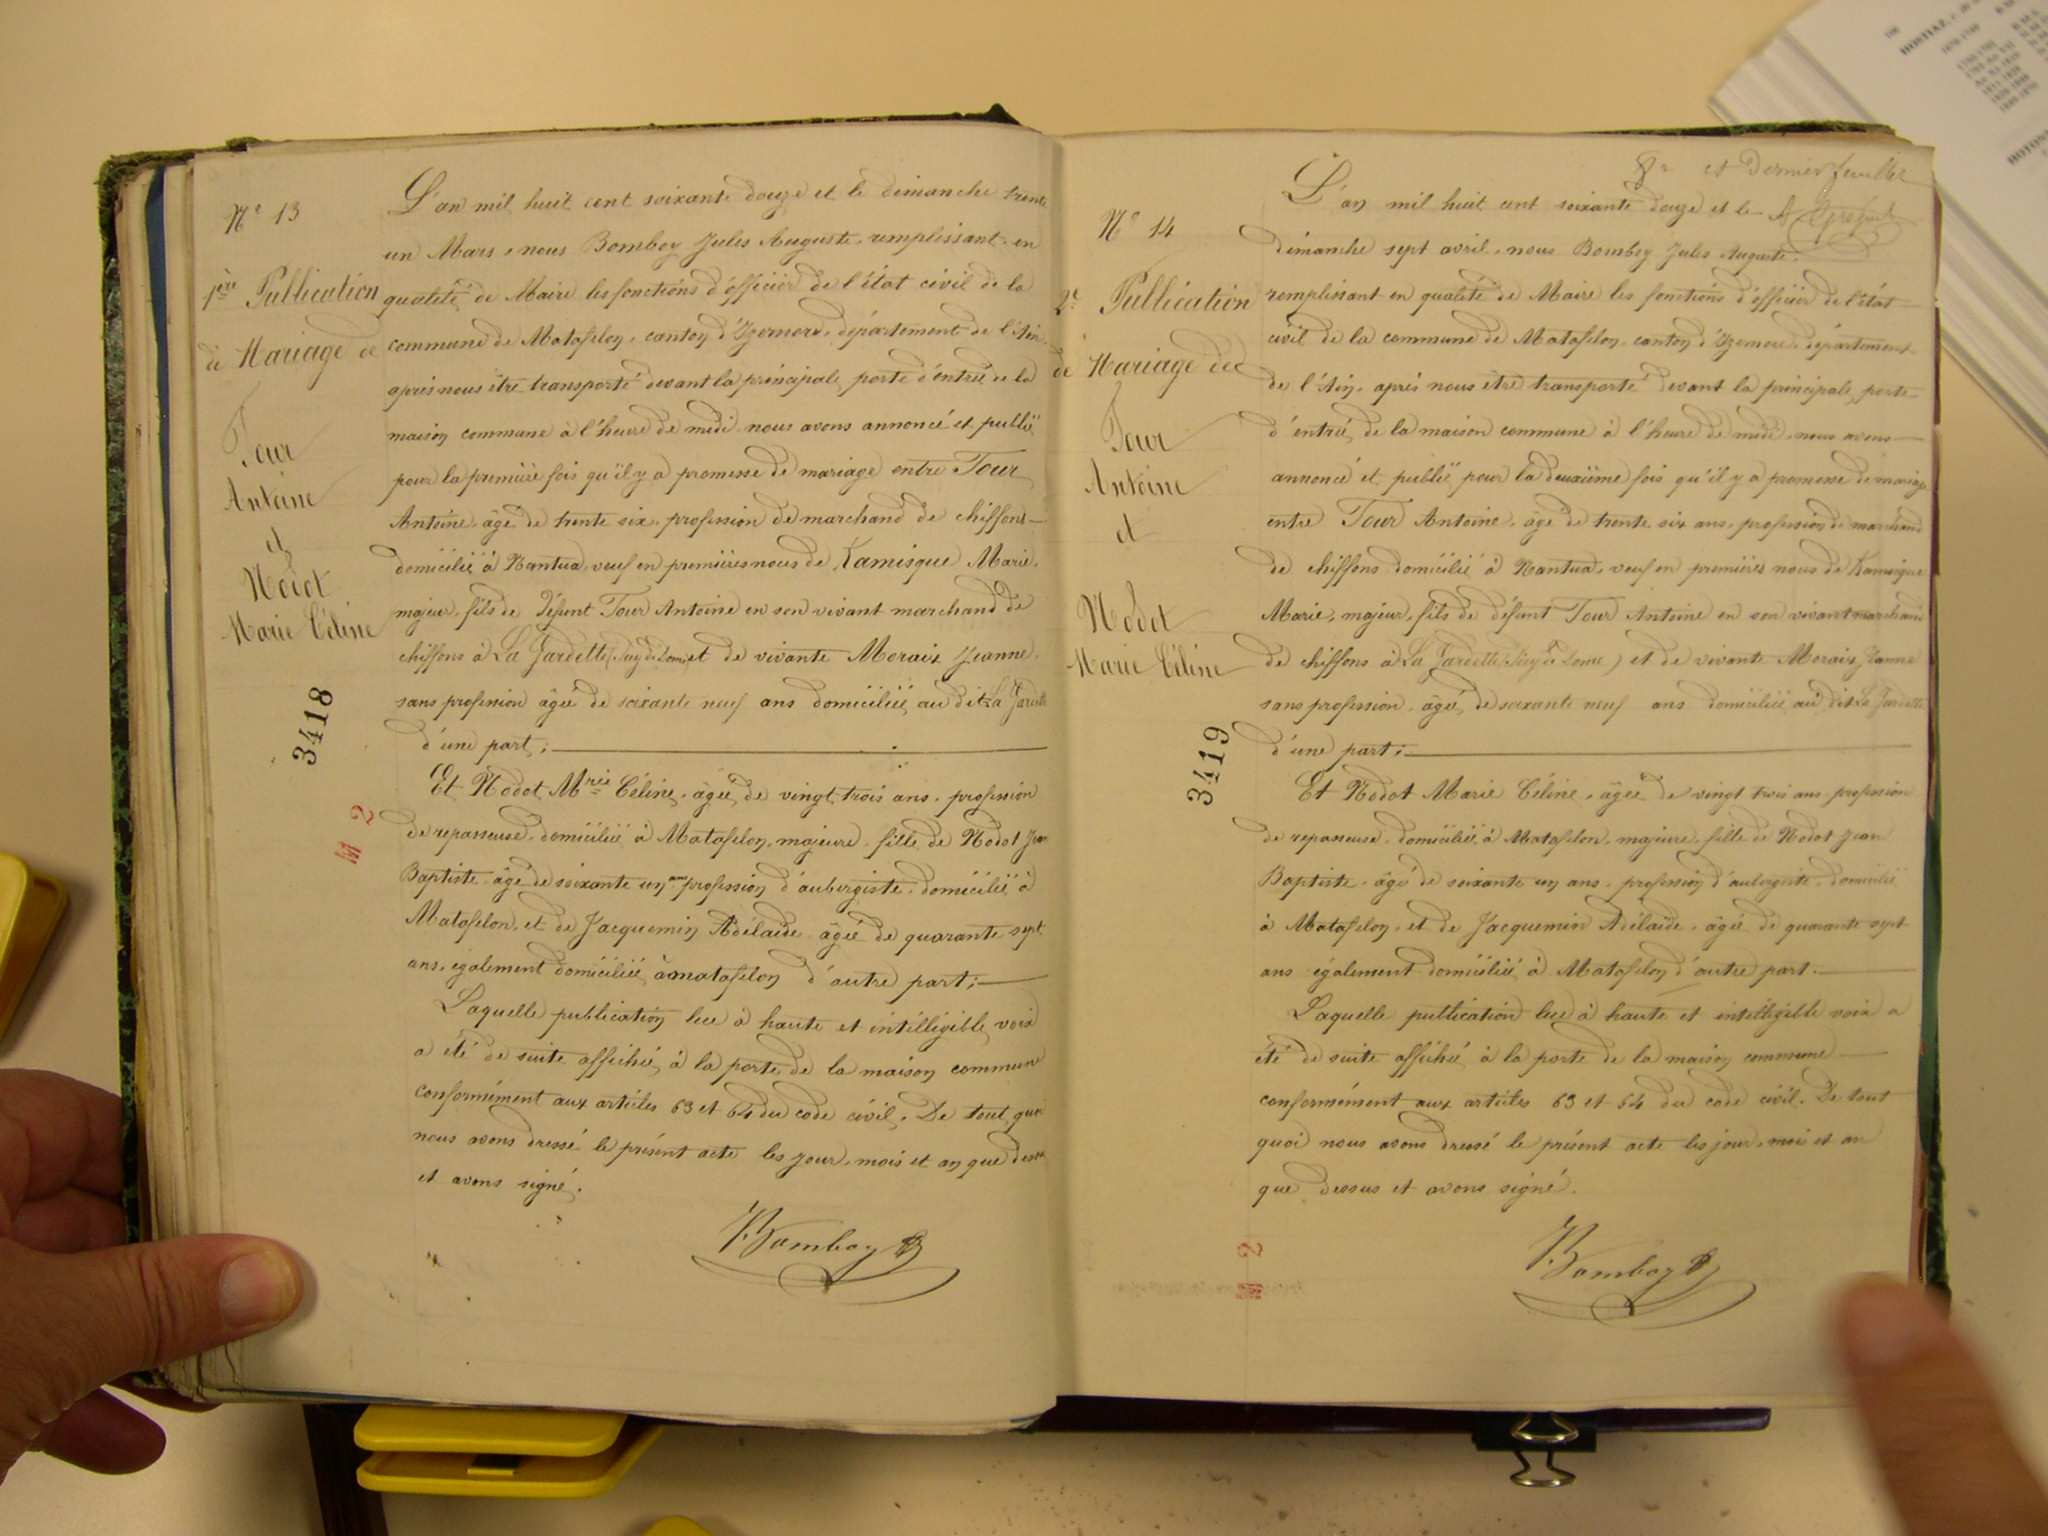 N° 13
1ère Publication
de Mariage de
Tour
Antoine
et
Nodot
Marie Céline
3418
M 2
L'an mil huit cent soixante douze et le dimanche trente
un Mars, nous Bomboy Jules Auguste, remplissant en
qualité de Maire les fonctions d'officier de l'état civil de la
commune de Matafelon, canton d'Izernore, département de l'Ain,
après nous être transporté devant la principale porte d'entrée de la
maison commune à l'heure de midi nous avons annoncé et publié
pour la première fois qu'il y a promesse de mariage entre Tour
Antoine, âgé de trente six, profession de marchand de chiffons
domicilié à Nantua, veuf en premières nous de Kamisque Marie,
majeur, fils de défunt Tour Antoine en son vivant marchand de
chiffons à La Jardette (Puy de Dome) et de vivante Moraix Jeanne
sans profession âgée de soixante neuf ans domiciliée au dit La Jardette
d'une part;
Et Nodot Mrie Céline, âgée de vingt trois ans, profession
de repasseuse, domiciliée à Matafelon, majeure, fille de Nodot Jean
Baptiste âgé de soixante un ans profession d'aubergiste, domicilié à
Matafelon, et de Jacquemin Adélaïde âgée de quarante sept
ans, également domiciliée à matafelon d'autre part;
Laquelle publication lue à haute et intelligible voix
a été de suite affichée à la porte de la maison commune
conformément aux articles 63 et 64 du code civil. De tout quoi
nous avons dressé le présent acte les jour, mois et an que dessus
et avons signé.
Bomboy
8e et Dernier feuillet
N° 14
2e Publication
de Mariage de
Tour
Antoine
et
Nodot
Marie Céline
3419
L'an mil huit cent soixante douze et le
dimanche sept avril, nous Bomboy Jules Auguste,
remplissant en qualité de Maire les fonctions d'officier de l'état
civil de la commune de Matafelon, canton d'Izernore, département
de l'Ain, après nous être transporté devant la principale porte
d'entrée de la maison commune à l'heure de midi, nous avons
annoncé et publié pour la deuxième fois qu'il y a promesse de mariage
entre Tour Antoine, âgé de trente six ans, profession de marchand
de chiffons domicilié à Nantua, veuf en premières nous de Kamisque
Marie, majeur, fils de défunt Tour Antoine en son vivant marchand
de chiffons à La Jardette (Puy de Dome) et de vivante Moraix Jeanne
sans profession, âgée de soixante neuf ans domiciliée au dit La Jardette
d'une part;
Et Nodot Marie Céline, âgée de vingt trois ans profession
de repasseuse, domiciliée à Matafelon, majeure, fille de Nodot Jean
Baptiste, âgé de soixante un ans, profession d'aubergiste, domicilié
à Matafelon, et de Jacquemin Adélaïde, âgée de quarante sept
ans également domiciliée à Matafelon d'autre part.
Laquelle publication lue à haute et intelligible voix a
été de suite affichée à la porte de la maison commune
conformément aux articles 63 et 64 du code civil. De tout
quoi nous avons dressé le présent acte les jour, mois et an
que dessus et avons signé.
Bomboy